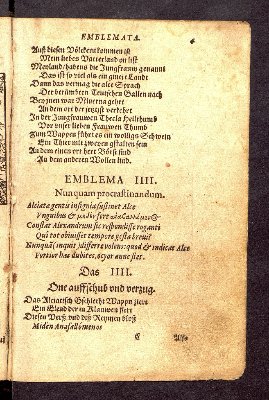 EMBLEMATA.
Auß diesen Völckern kommen ist
Mein liebes Vatterland on list
Meylandt habens die Jungfrauwn genannt
Das ist so viel als ein gmeit Landt
Dann das vermag die alte Sprach
Der berümbten Teutschen Gallen nach
Bey jnen war Minerva gehrt
An dem ort der jetzt verkehrt
In der Jungfrauwen Thecla
Vor unser lieben Frauwen Thumb
Zum Wappen führt es ein wollig Schwein
Ein Thier mit zweyen gstalten fein
An dem einen ort here Börst sind
In dem anderen Wollen lind.
EMBLEMA IIII.
Nunquam procrastinandum.
Alciatæ gentis insignia sustinet Alce
Unguibus & μηδὲν fert ἀναβαλλόμενος
Constat Alexandrum sic respondisse roganti
Qui tot obivisset tempore gesta brevi?
Nunquã (inquit) differre volens: quod & indicat Alce
Fortior hæc dubites, ocyor anne siet.
Das IIII.
One auffschub und verzug.
Das Alciatisch Gschlecht Wappn ziert
Ein Elend der in Klauwen fiert
Diesen Verß und deß Reymen bloß
Miden Anaballómenos
C Also